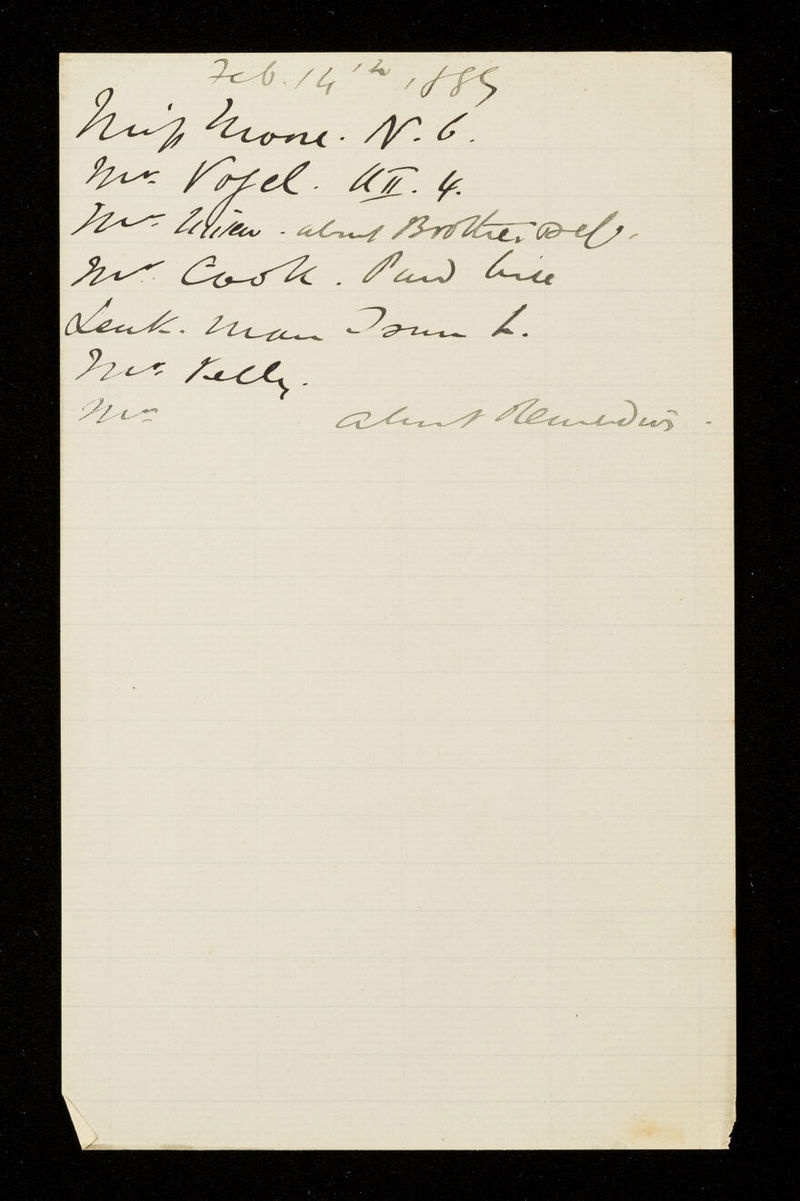 Feb. 14th, 1885
Miss Moore. N. 6.
Mr. Vogel. II. 4.
Mr. about Brother
Mr. Cook. Paid bill
Man L.
Mr. Kelly.
Mr about Remedies.